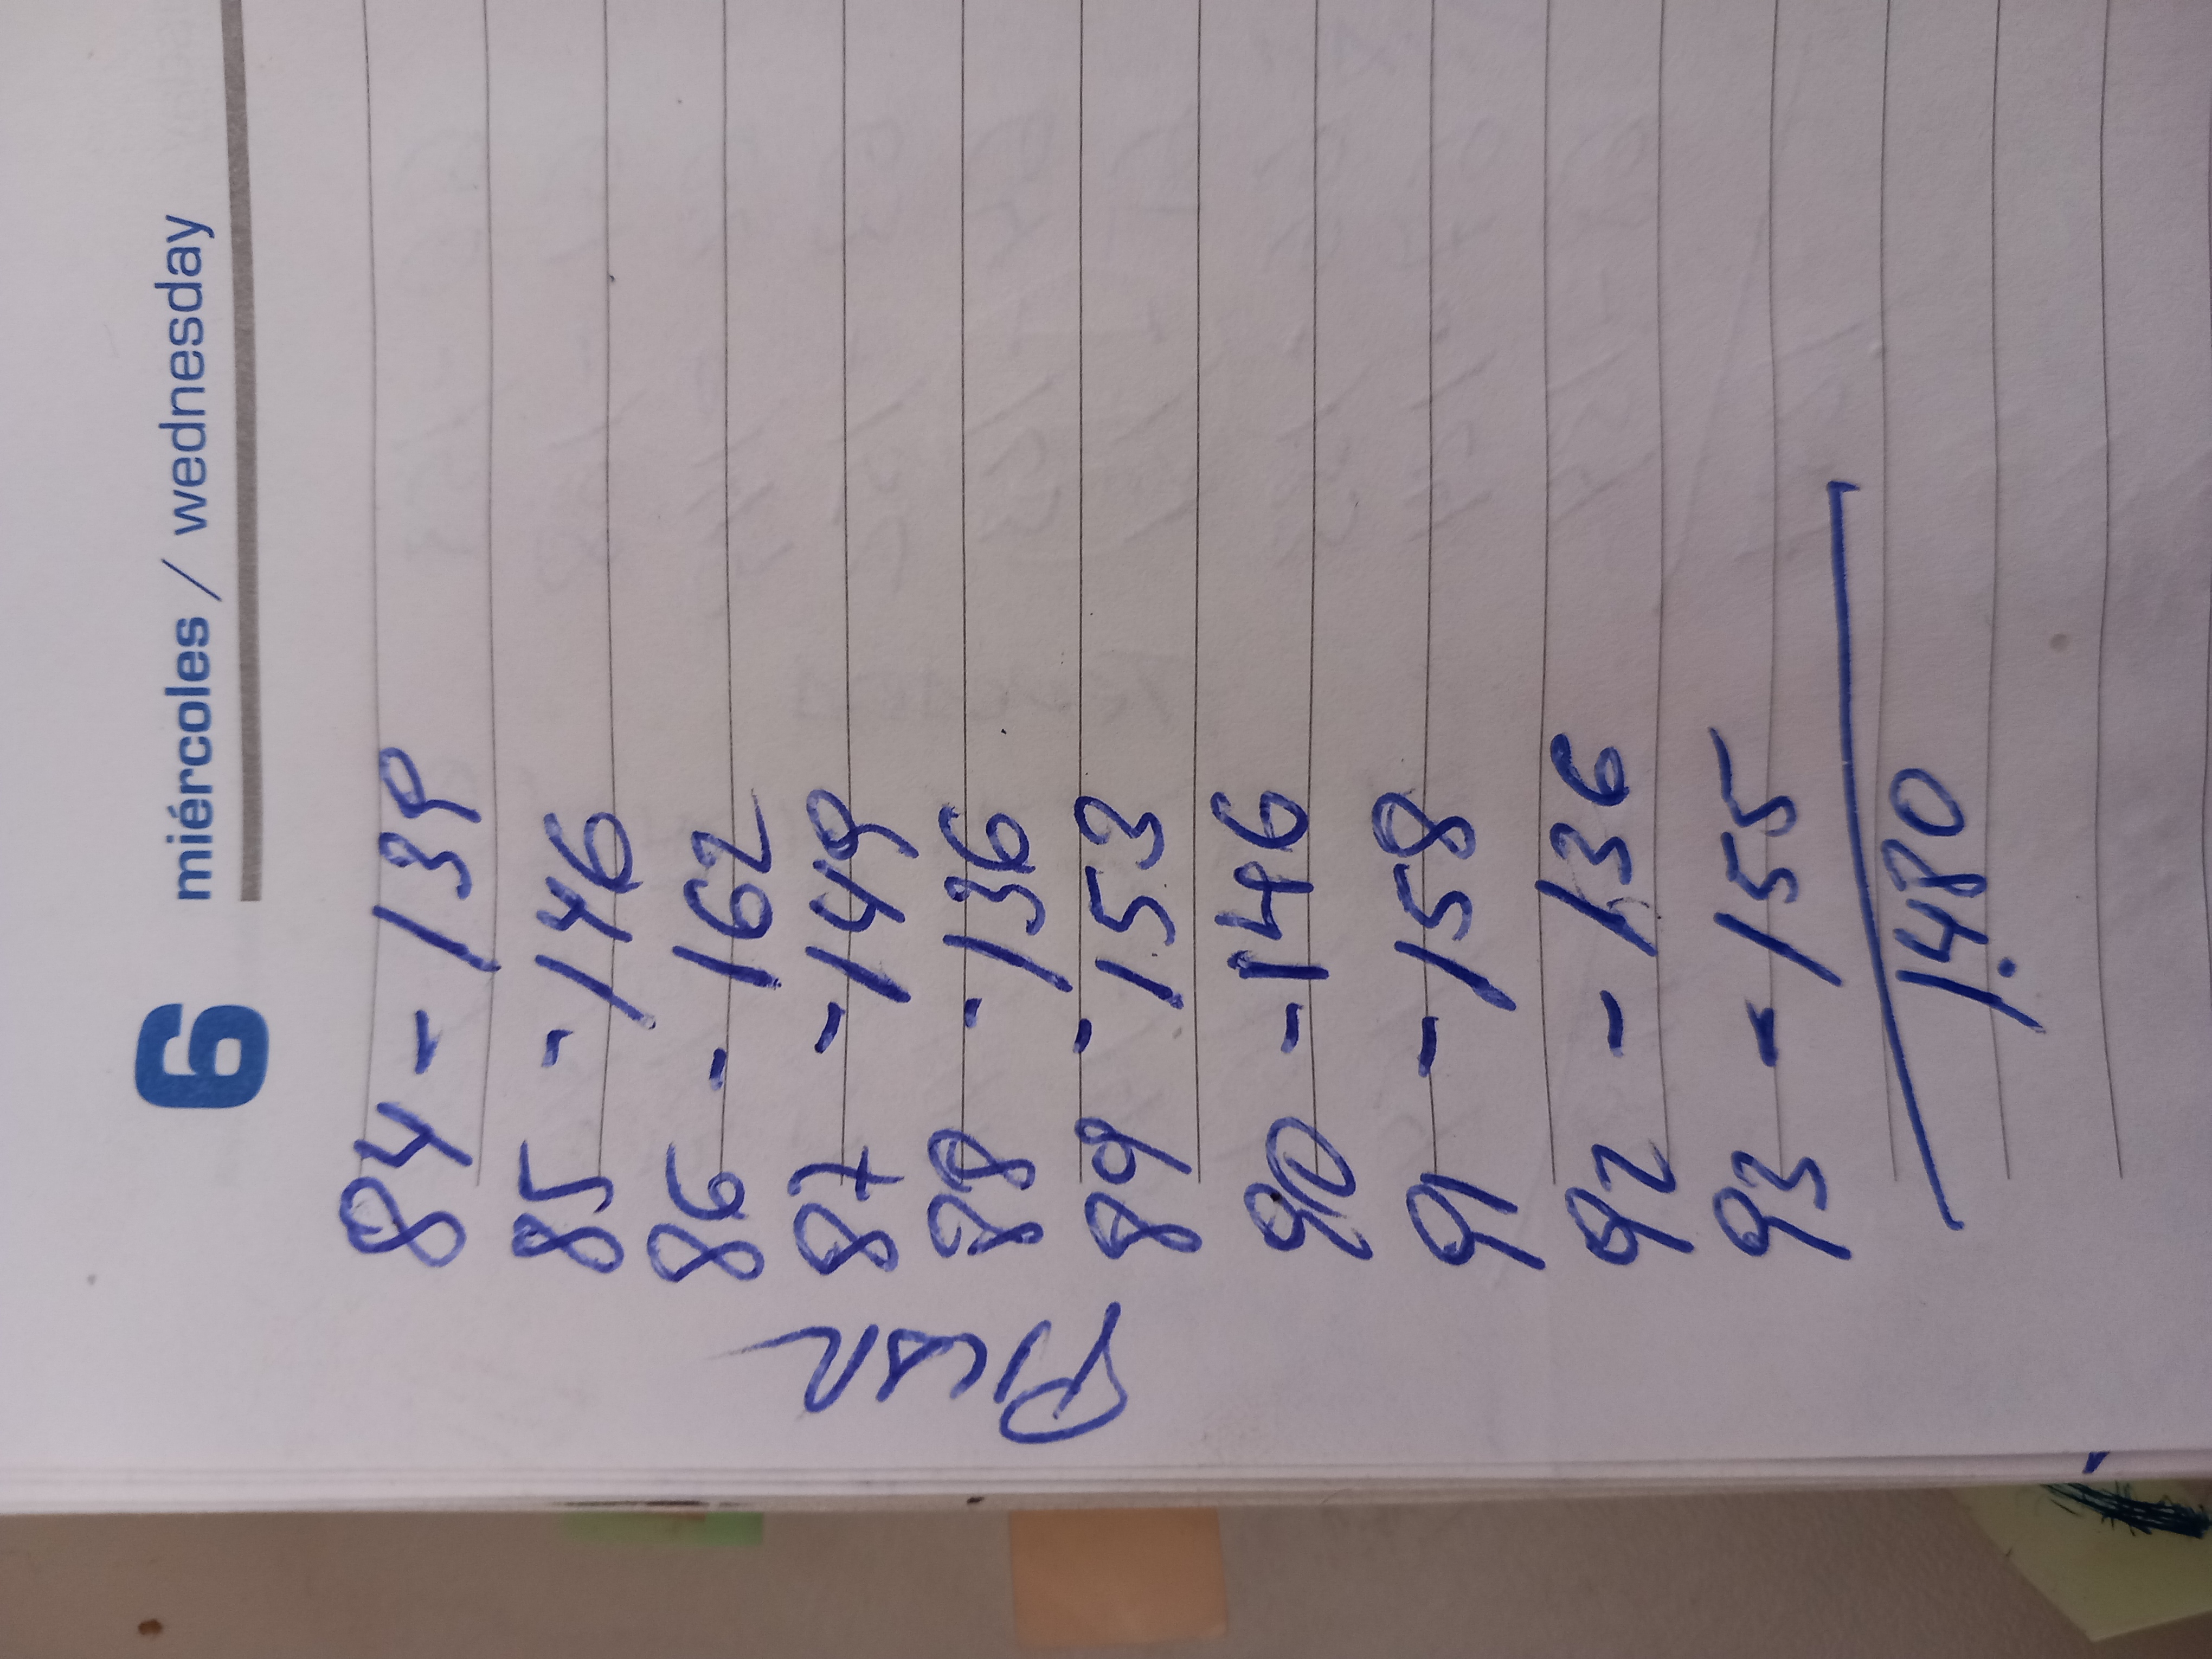 6 miércoles / wednesday
84 - 139
85 - 146
86 - 162
87 - 149
88 - 136
89 - 153
90 - 146
91 - 158
92 - 136
93 - 155
1.480